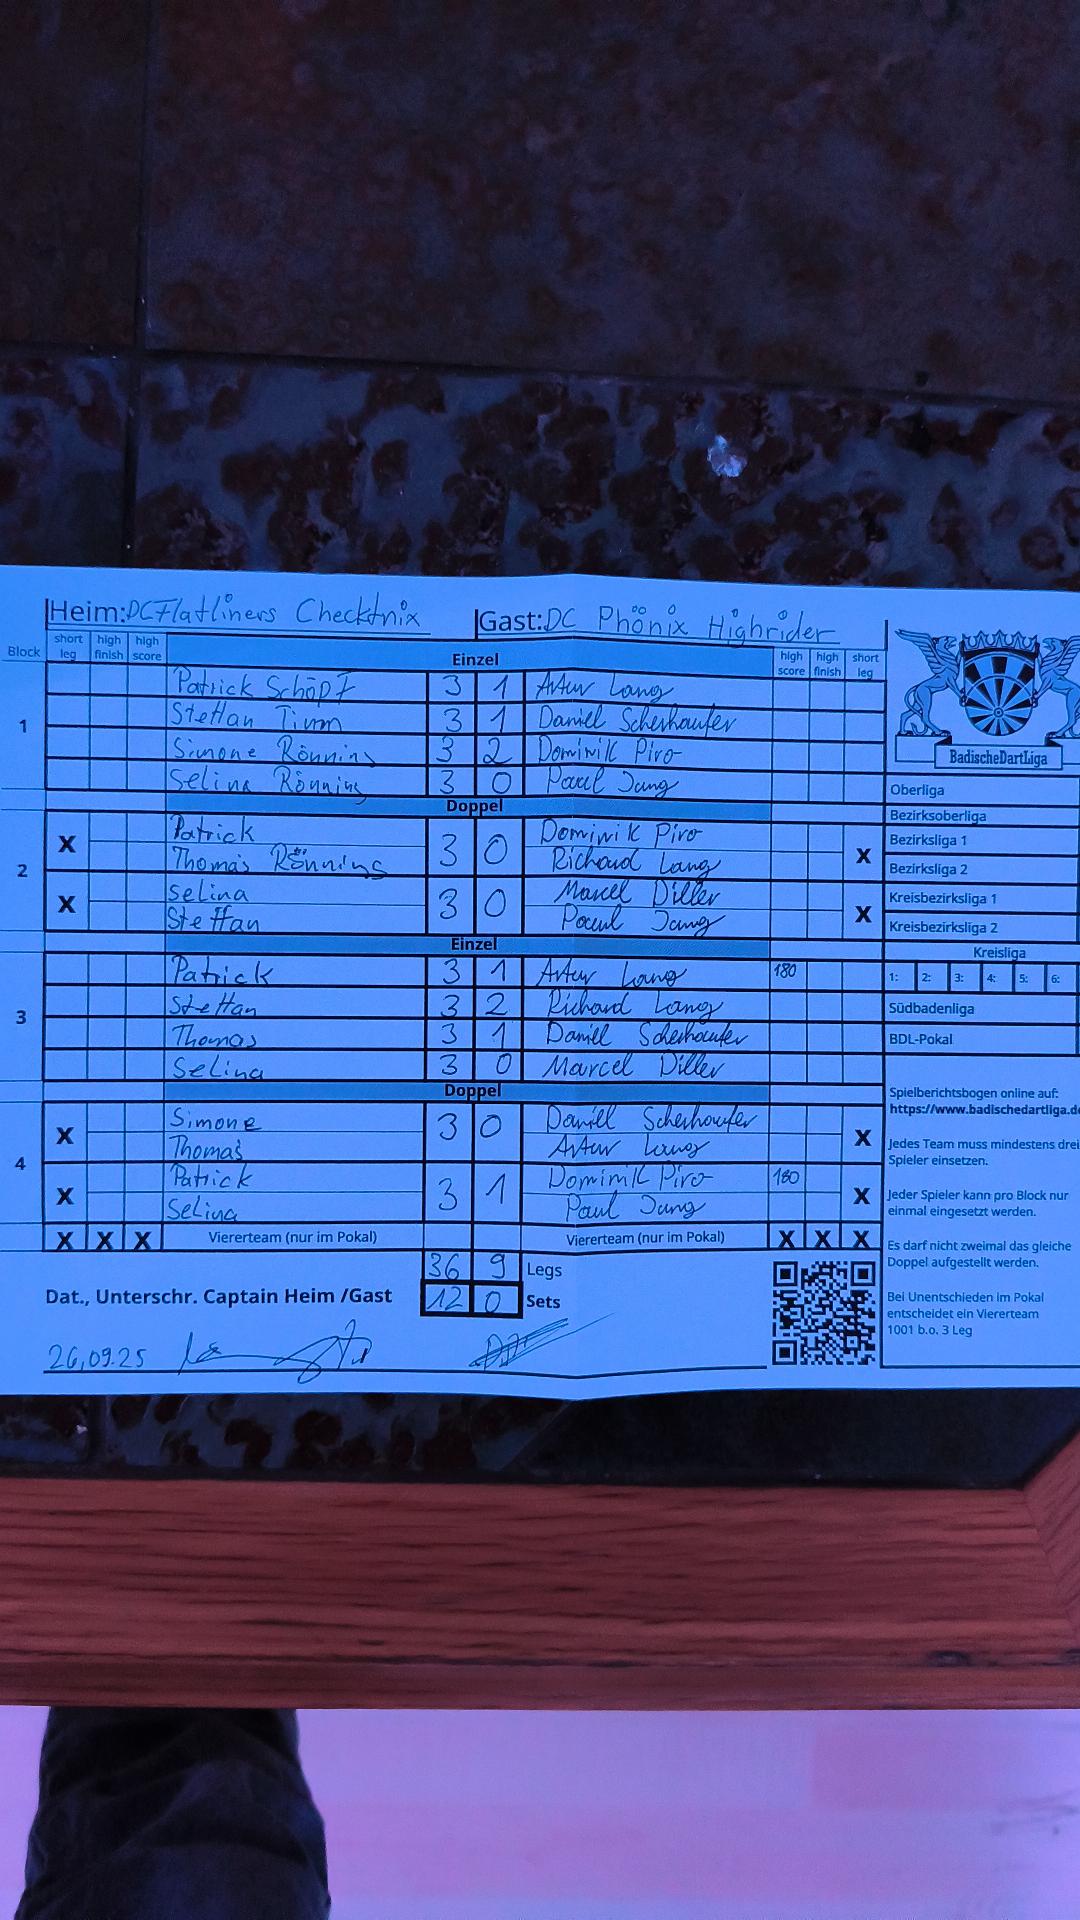 Heim: DC Flatliners Checktnix Gast: DC Phönix Highrider
Block short leg high finish high score Einzel high score high finish short leg
1
Patrick Schöpf 3 1 Artur Lang
Steffan Timm 3 1 Daniel Scherhaufer
Simone Rönning 3 2 Dominik Piro
Selina Rönning 3 0 Paul Jang
Doppel
2
X Patrick 3 0 Dominik Piro X
Thomas Rönning Richard Lang
X Selina 3 0 Marcel Diller X
Steffan Paul Jang
Einzel
3
Patrick 3 1 Artur Lang 180
Steffan 3 2 Richard Lang
Thomas 3 1 Daniel Scherhaufer
Selina 3 0 Marcel Diller
Doppel
4
X Simone 3 0 Daniel Scherhaufer X
Thomas Artur Lang
X Patrick 3 1 Dominik Piro 180 X
Selina Paul Jang
X X X Viererteam (nur im Pokal) Viererteam (nur im Pokal) X X X
36 9 Legs
Dat., Unterschr. Captain Heim /Gast 12 0 Sets
26.09.25
BadischeDartLiga
Oberliga
Bezirksoberliga
Bezirksliga 1
Bezirksliga 2
Kreisbezirksliga 1
Kreisbezirksliga 2
Kreisliga
1: 2: 3: 4: 5: 6:
Südbadenliga
BDL-Pokal
Spielberichtsbogen online auf:
https://www.badischedartliga.de
Jedes Team muss mindestens drei
Spieler einsetzen.
Jeder Spieler kann pro Block nur
einmal eingesetzt werden.
Es darf nicht zweimal das gleiche
Doppel aufgestellt werden.
Bei Unentschieden im Pokal
entscheidet ein Viererteam
1001 b.o. 3 Leg